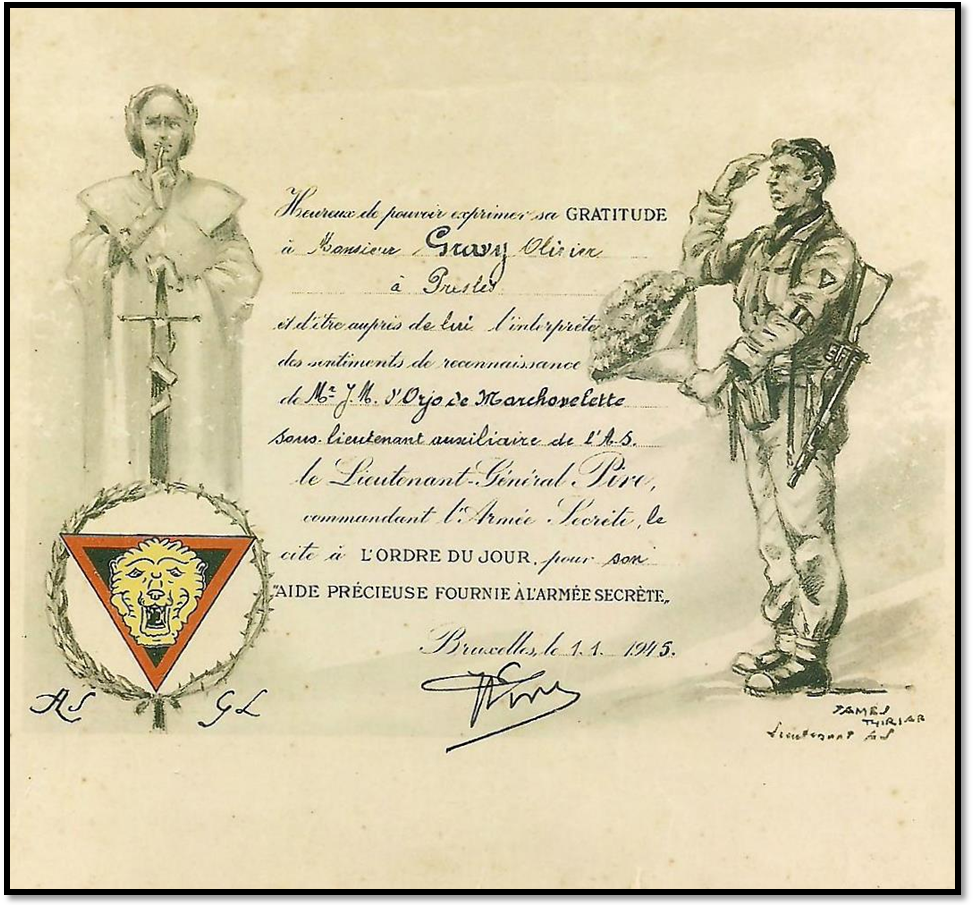 Heureux de pouvoir exprimer sa GRATITUDE
à Monsieur Gravy Olivier
à Presles
et d'être auprès de lui l'interprète
des sentiments de reconnaissance
de Mr J.M. d'Orjo de Marchovelette
sous-lieutenant auxiliaire de l'A.S.
le Lieutenant-Général Pire,
commandant l'Armée Secrète, le
cite à L'ORDRE DU JOUR, pour son
"AIDE PRÉCIEUSE FOURNIE À L'ARMÉE SECRÈTE„
Bruxelles, le 1.1. 1945.
Pire
AS GL
JAMES
THIRIAR
Lieutenant AS